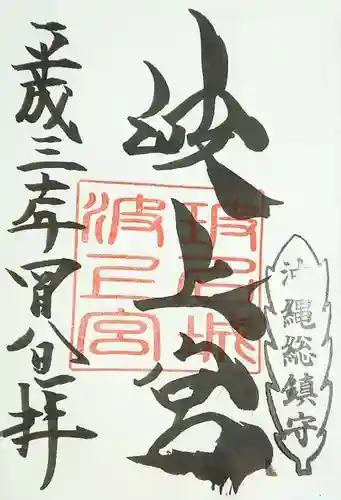 沖縄総鎮守
波上宮
波上宮
平成三十年四月八日拝